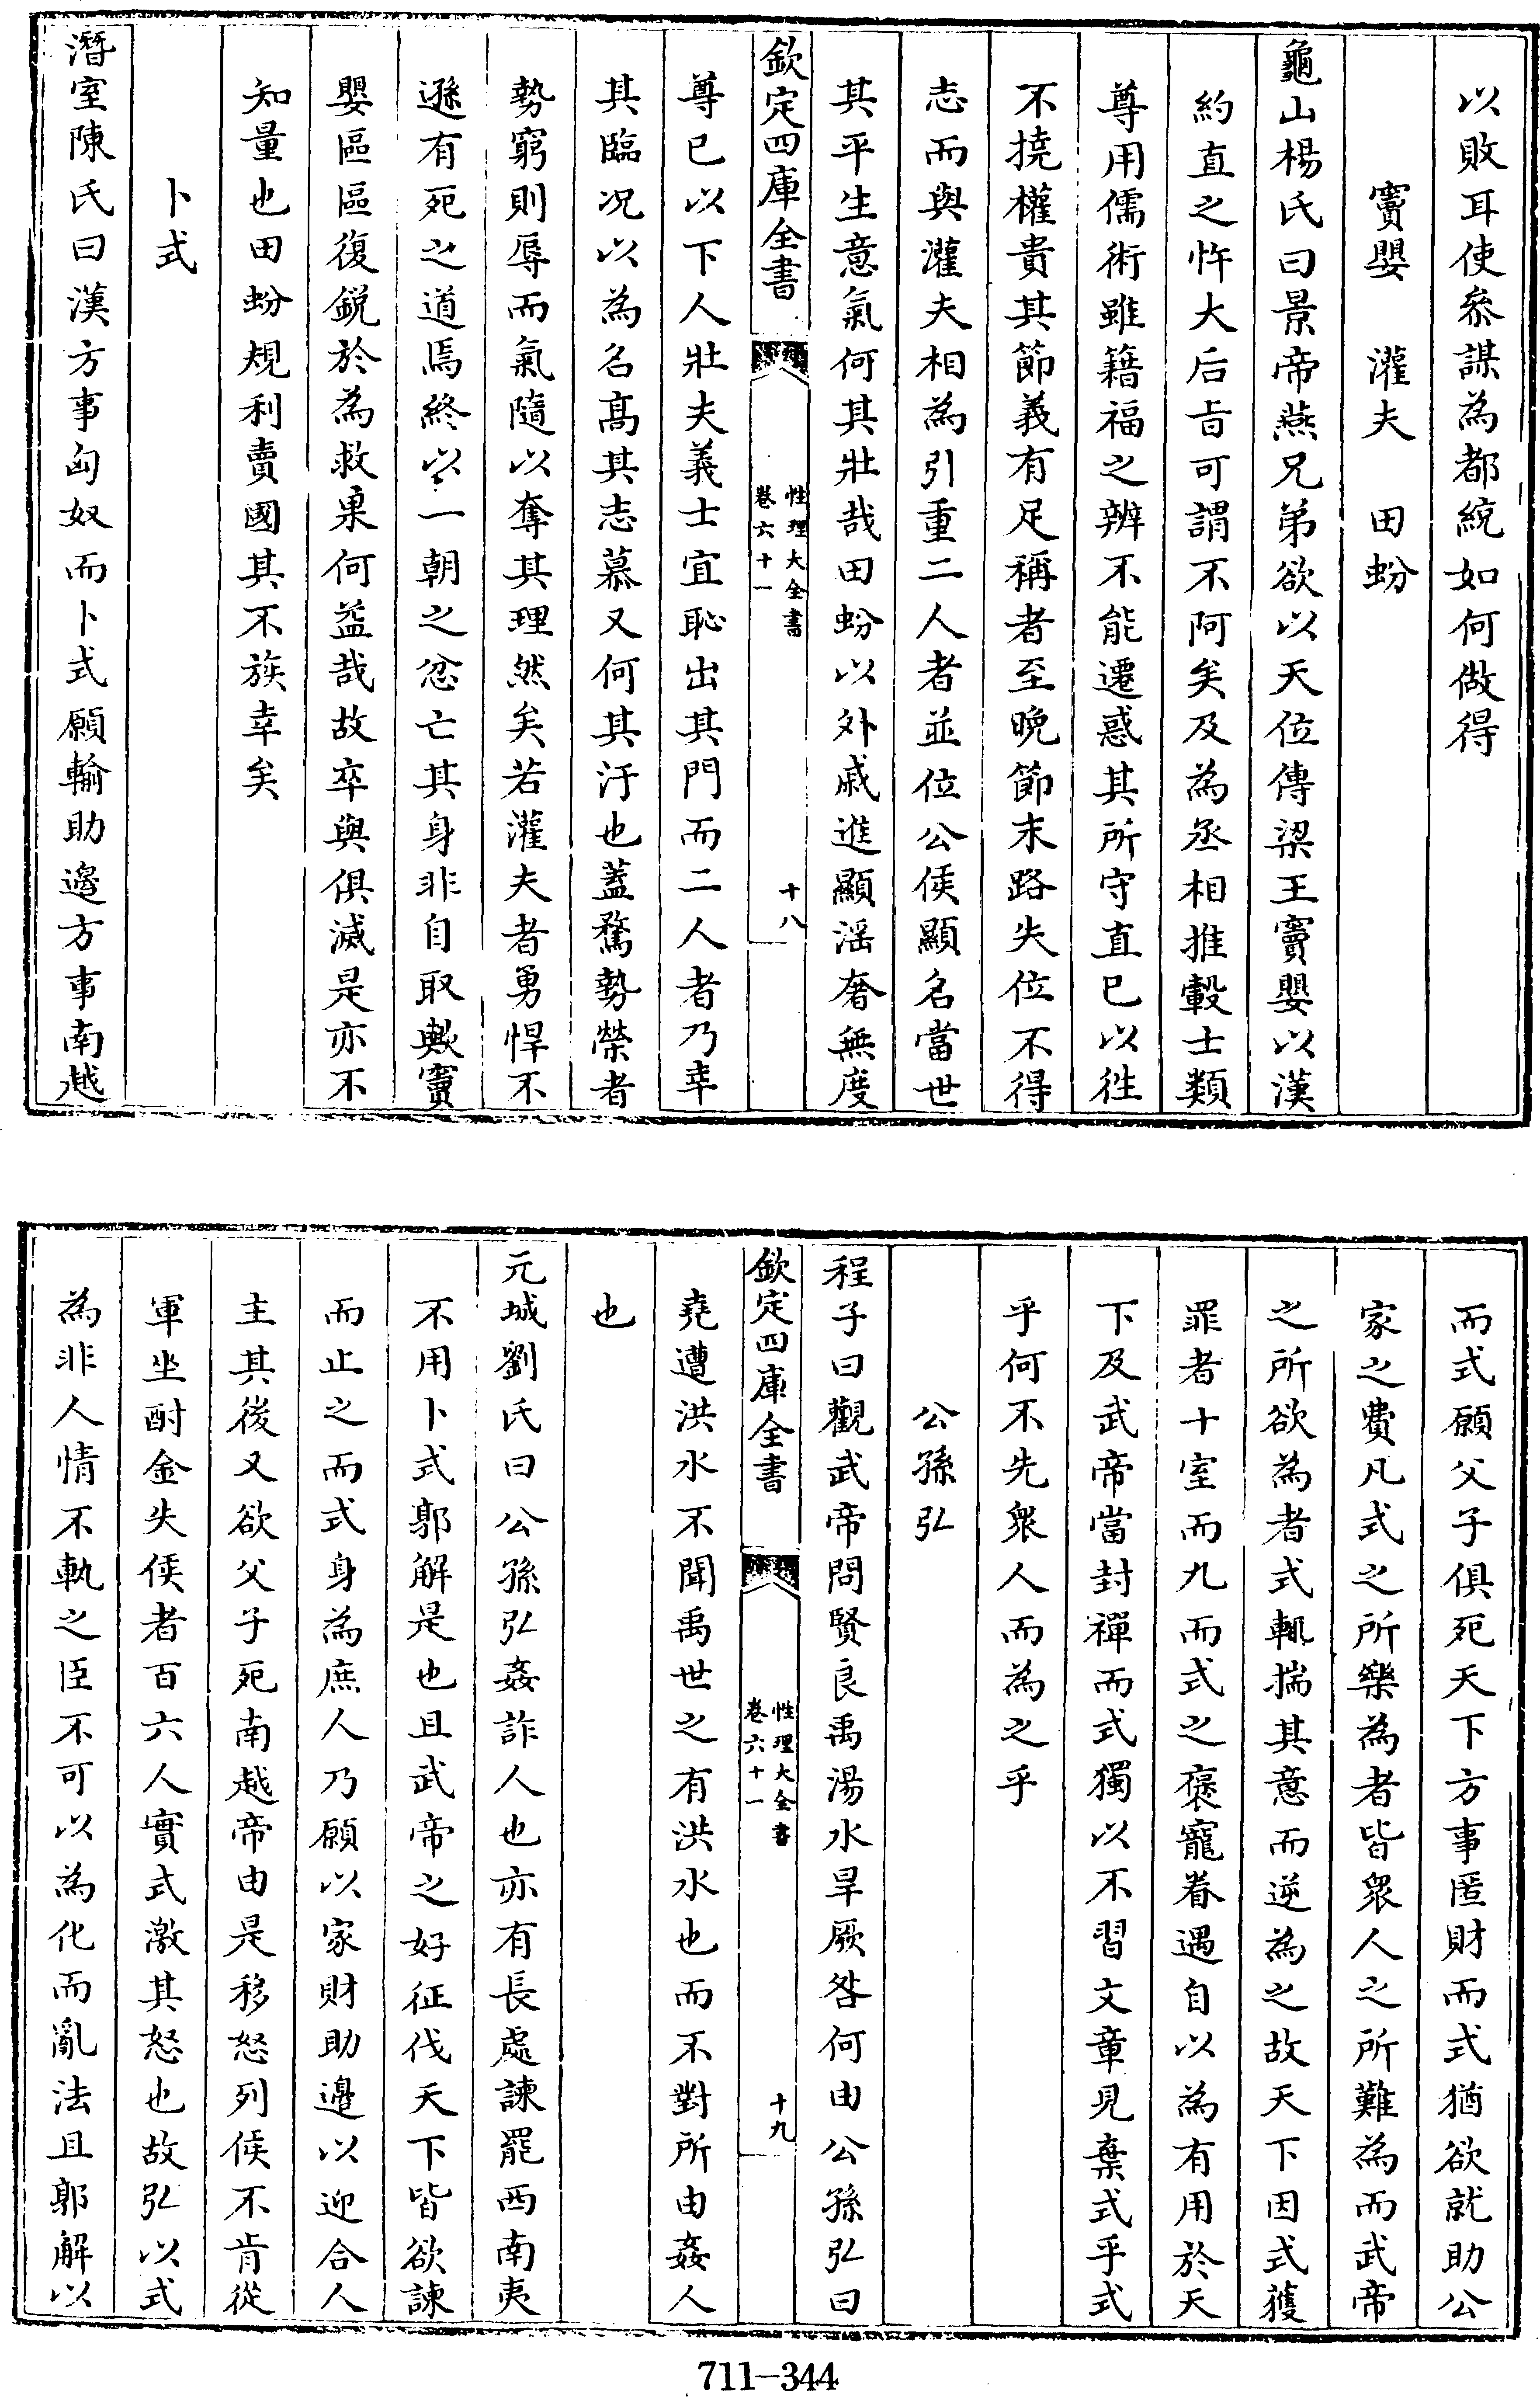 以敗耳使叅謀為都統如何做得
竇嬰　灌夫　田蚡
龜山楊氏曰景帝燕兄弟欲以天位傳梁王竇嬰以漢
約直之忤大后㫖可謂不阿矣及為丞相推轂士類
尊用儒術雖籍福之辨不能遷惑其所守直已以徃
不撓權貴其節義有足稱者至晩節末路失位不得
志而與灌夫相為引重二人者並位公侯顯名當世
其平生意氣何其壯哉田蚡以外戚進顯滛奢無度
欽定四庫全書
性理大全書
卷六十一
十八
尊已以下人壯夫義士宜恥出其門而二人者乃幸
其臨况以為名髙其志慕又何其汙也蓋騖勢榮者
勢窮則辱而氣隨以奪其理然矣若灌夫者勇悍不
遜有死之道焉終以一朝之忿亡其身非自取歟竇
嬰區區復鋭於為救果何益哉故卒與俱滅是亦不
知量也田蚡規利賣國其不族幸矣
卜式
潛室陳氏曰漢方事匈奴而卜式願輸助邊方事南越
而式願父子俱死天下方事匿財而式猶欲就助公
家之費凡式之所樂為者皆衆人之所難為而武帝
之所欲為者式輒揣其意而逆為之故天下因式獲
罪者十室而九而式之褒寵眷遇自以為有用於天
下及武帝當封禪而式獨以不習文章見棄式乎式
乎何不先衆人而為之乎
公孫弘
程子曰觀武帝問賢良禹湯水旱厥咎何由公孫弘曰
欽定四庫全書
性理大全書
卷六十一
十九
堯遭洪水不聞禹世之有洪水也而不對所由姦人
也
元城劉氏曰公孫弘姦詐人也亦有長處諫罷西南夷
不用卜式郭解是也且武帝之好征伐天下皆欲諫
而止之而式身為庶人乃願以家財助邊以迎合人
主其後又欲父子死南越帝由是移怒列侯不肯從
軍坐酎金失侯者百六人實式激其怒也故弘以式
為非人情不軌之臣不可以為化而亂法且郭解以
711-344